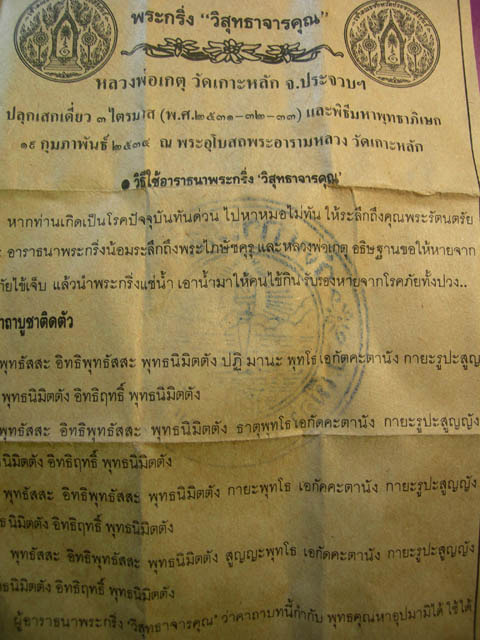 พระกริ่ง “วิสุทธาจารคุณ”
หลวงพ่อเกตุ วัดเกาะหลัก จ.ประจวบฯ
ปลุกเสกเดี่ยว ๓ ไตรมาส (พ.ศ.๒๕๓๑-๓๒-๓๓) และพิธีมหาพุทธาภิเษก
๑๙ กุมภาพันธ์ ๒๕๓๔ ณ พระอุโบสถพระอารามหลวง วัดเกาะหลัก
● วิธีใช้อาราธนาพระกริ่ง ‘วิสุทธาจารคุณ’
หากท่านเกิดเป็นโรคปัจจุบันทันด่วน ไปหาหมอไม่ทัน ให้ระลึกถึงคุณพระรัตนตรัย
อาราธนาพระกริ่งน้อมระลึกถึงพระไภษัชคุรุ และหลวงพ่อเกตุ อธิษฐานขอให้หายจาก
ภัยไข้เจ็บ แล้วนำพระกริ่งแช่น้ำ เอาน้ำมาให้คนไข้กิน รับรองหายจากโรคภัยทั้งปวง..
าถาบูชาติดตัว
พุทธัสสะ อิทธิพุทธัสสะ พุทธนิมิตตัง ปฏิ มานะ พุทโธเอกัคคะตานัง กายะรูปะสูญ
พุทธนิมิตตัง อิทธิฤทธิ์ พุทธนิมิตตัง
พุทธัสสะ อิทธิพุทธัสสะ พุทธนิมิตตัง ธาตุพุทโธเอกัคคะตานัง กายะรูปะสูญญัง
นิมิตตัง อิทธิฤทธิ์ พุทธนิมิตตัง
พุทธัสสะ อิทธิพุทธัสสะ พุทธนิมิตตัง กายะพุทโธ เอกัคคะตานัง กายะรูปะสูญญัง
ธนิมิตตัง อิทธิฤทธิ์ พุทธนิมิตตัง
พุทธัสสะ อิทธิพุทธัสสะ พุทธนิมิตตัง สูญญะพุทโธ เอกัคคะตานัง กายะรูปะสูญญัง
ธนิมิตตัง อิทธิฤทธิ์ พุทธนิมิตตัง
ผู้อาราธนาพระกริ่ง ‘วิสุทธาจารคุณ’ ว่าคาถาบทนี้กำกับ พุทธคุณหาอุปมามิได้ ใช้ได้